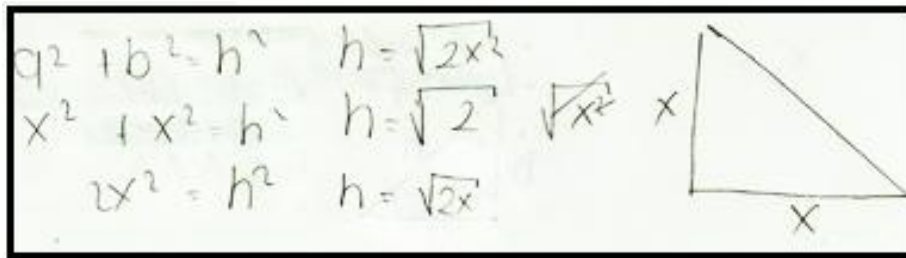 a² + b² = h² h = √2x²
x² + x² = h² h = √2 √x² x
2x² = h² h = √2x
x